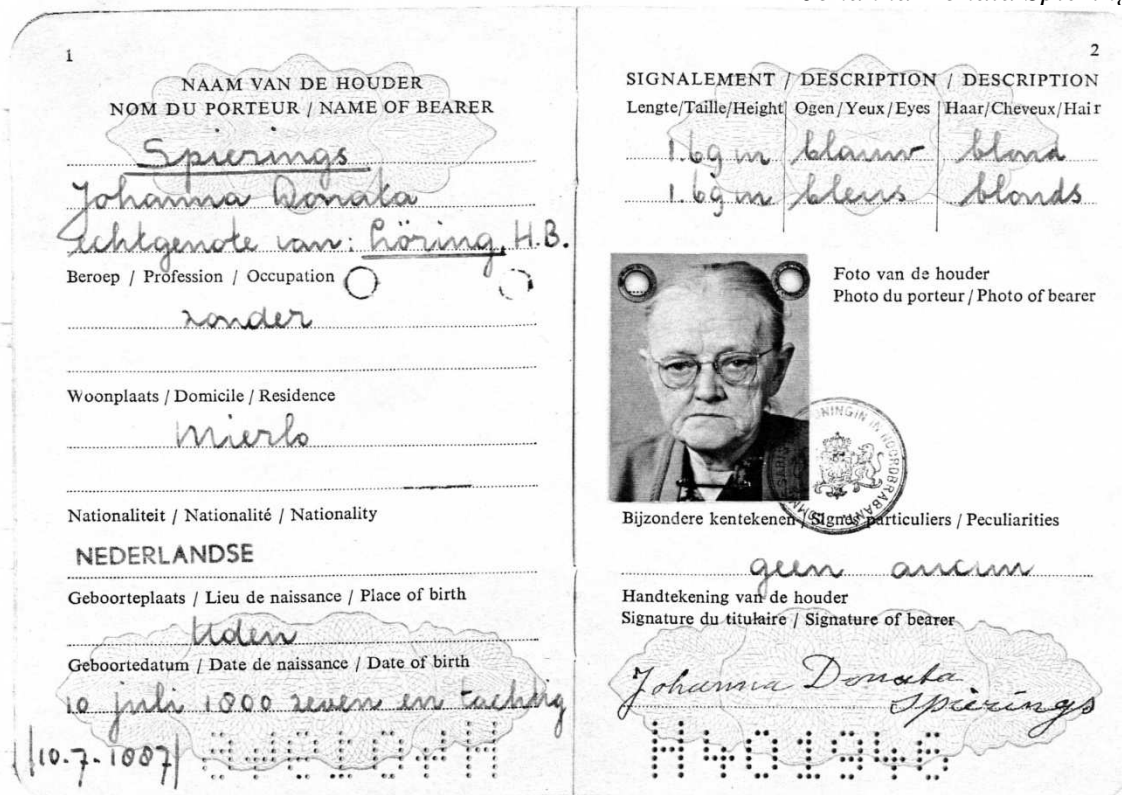 1
NAAM VAN DE HOUDER
NOM DU PORTEUR / NAME OF BEARER
Spierings
Johanna Donata
echtgenote van: Löring, H.B.
Beroep / Profession / Occupation
zonder
Woonplaats / Domicile / Residence
Mierlo
Nationaliteit / Nationalité / Nationality
NEDERLANDSE
Geboorteplaats / Lieu de naissance / Place of birth
Uden
Geboortedatum / Date de naissance / Date of birth
10 juli 1800 zeven en tachtig
10-7-1887
2
SIGNALEMENT / DESCRIPTION / DESCRIPTION
Lengte/Taille/Height Ogen/Yeux/Eyes Haar/Cheveux/Hair
1.69 m blauw blond
1.69 m bleus blonds
Foto van de houder
Photo du porteur / Photo of bearer
Bijzondere kentekenen / Signes particuliers / Peculiarities
geen aucun
Handtekening van de houder
Signature du titulaire / Signature of bearer
Johanna Donata
Spierings